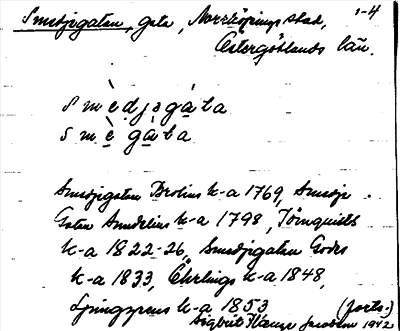 Smedjegatan, gata, Norrköpings stad, 1-4
Östergötlands län.
smèdjagàta
smègàta
Smedjegatan Brolins k-a 1769, Smedje
Gatan Sundelius k-a 1798, Törnquists
k-a 1822-26, Smedjegatan
k-a 1833, Ehrlings k-a 1848,
Ljunggrens k-a 1853 (forts.)
Sigbrit 1942